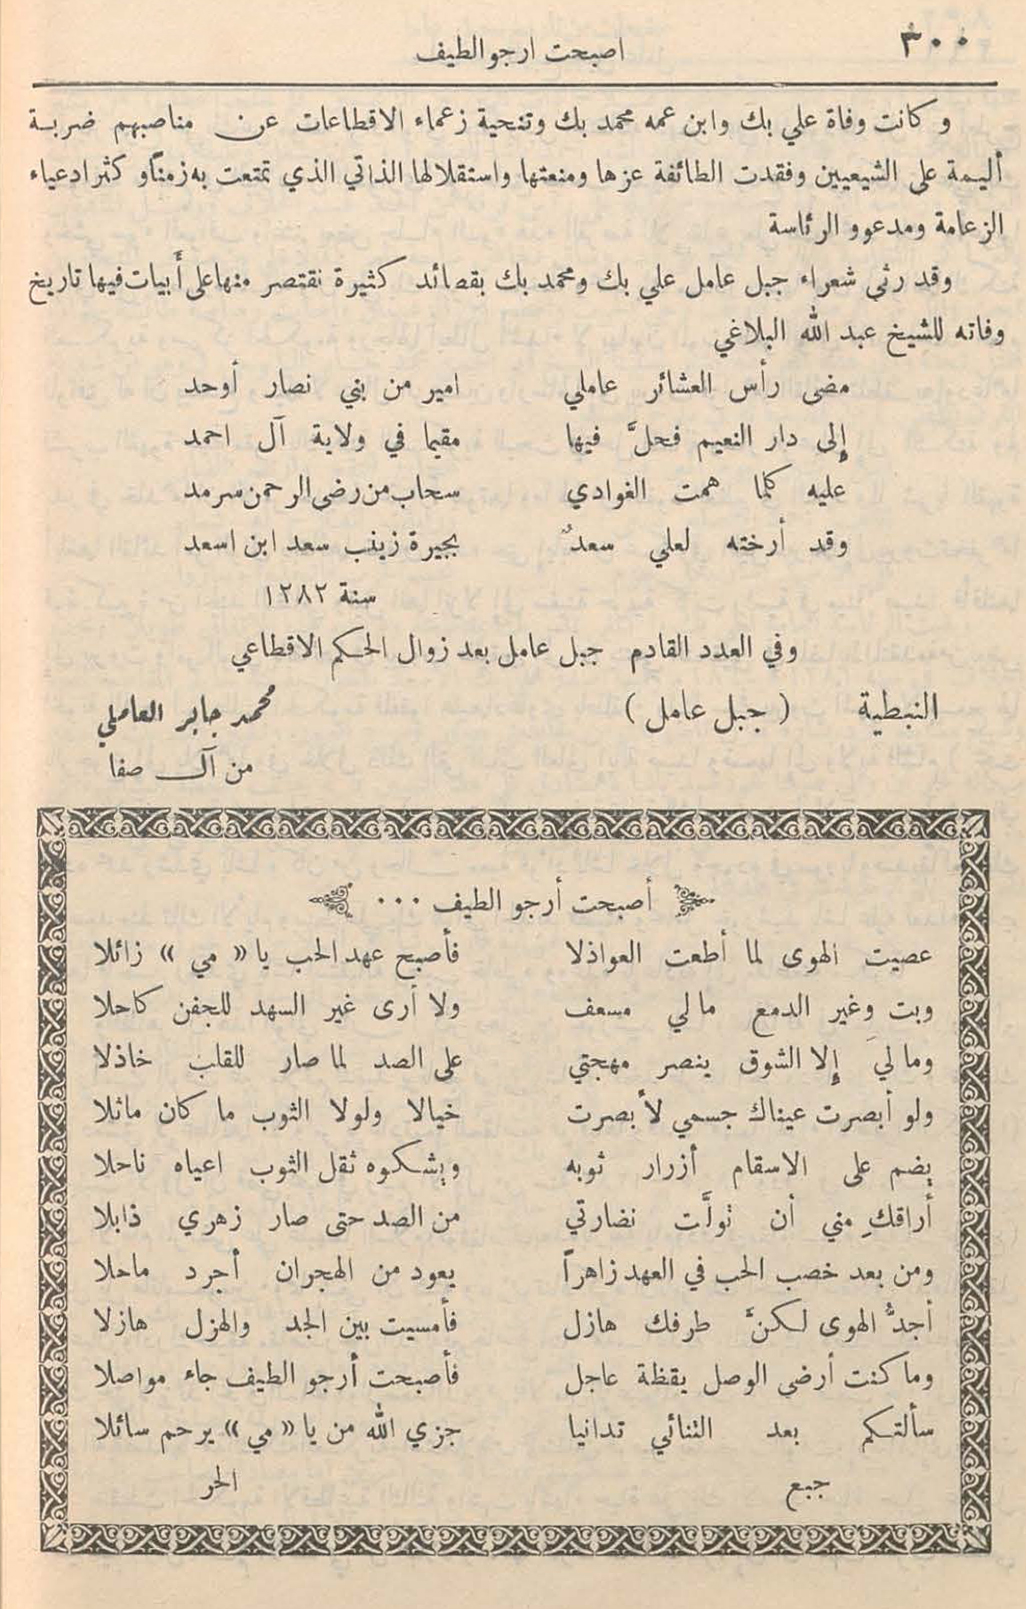 ٣٠٠
اصبحت ارجو الطيف
وكانت وفاة علي بك وابن عمه محمد بك وتنحية زعماء الاقطاعات عن مناصبهم ضربة
أليمة على الشيعيين وفقدت الطائفة عزها ومنعتها واستقلالها الذاتي الذي تمتعت به زمناً وكثر ادعياء
الزعامة ومدعوو الرئاسة
وقد رثى شعراء جبل عامل علي بك ومحمد بك بقصائد كثيرة نقتصر منها على أبيات فيها تاريخ
وفاته للشيخ عبد الله البلاغي
مضى رأس العشائر عاملي امير من بني نصار أوحد
إلى دار النعيم فحلَّ فيها مقيما في ولاية آل احمد
عليه كلما همت الغوادي سحاب من رضى الرحمن سرمد
وقد أرخته لعلي سعدٌ بجيرة زينب سعد ابن اسعد
سنة ١٢٨٢
وفي العدد القادم جبل عامل بعد زوال الحكم الاقطاعي
النبطية ( جبل عامل ) محمد جابر العاملي
من آل صفا
أصبحت أرجو الطيف ...
عصيت الهوى لما أطعت العواذلا فأصبح عهد الحب يا « مي » زائلا
وبت وغير الدمع مالي مسعف ولا أرى غير السهد للجفن كاحلا
وما ليَ إلا الشوق ينصر مهجتي على الصد لما صار للقلب خاذلا
ولو أبصرت عيناك جسمي لأبصرت خيالا ولولا الثوب ما كان ماثلا
يضم على الاسقام أزرار ثوبه ويشكوه ثقل الثوب اعياه ناحلا
أراقكِ مني أن تولَّت نضارتي من الصد حتى صار زهري ذابلا
ومن بعد خصب الحب في العهد زاهراً يعود من الهجران أجرد ماحلا
أجدُّ الهوى لكنَّ طرفك هازل فأمسيت بين الجد والهزل هازلا
وما كنت أرضى الوصل يقظة عاجل فأصبحت أرجو الطيف جاء مواصلا
سألتكم بعد التنائي تدانيا جزي الله من يا « مي » يرحم سائلا
جبع الحر